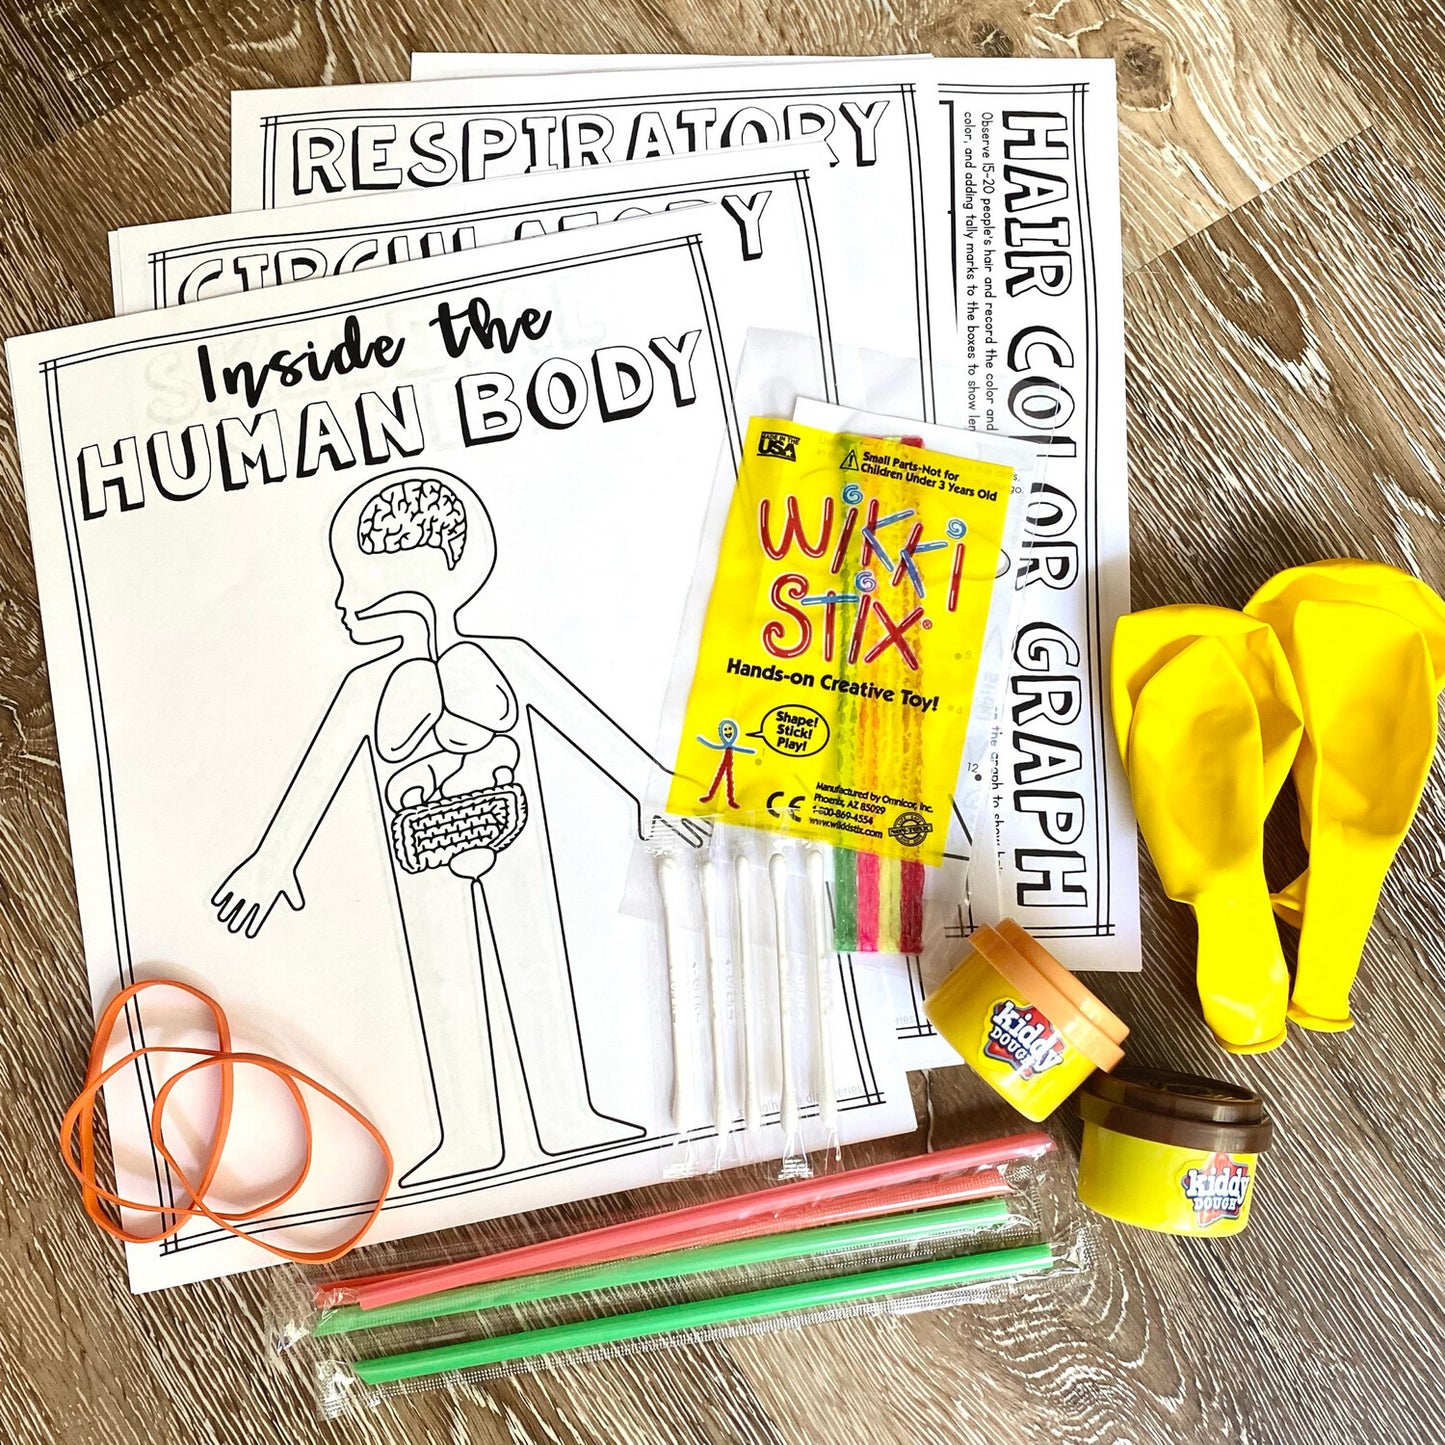 RESPIRATORY
CIRCULATORY
Inside the
HUMAN BODY
HAIR COLOR GRAPH
Observe 15-20 people's hair and record the color and
color, and adding tally marks to the boxes to show
the graph to show
5
4
12
MADE IN THE
USA
Small Parts-Not for
Children Under 3 Years Old
Wikki
Stix®
Hands-on Creative Toy!
Shape!
Stick!
Play!
CE
Manufactured by Omnicor, Inc.
Phoenix, AZ 85029
1-800-869-4554
www.wikkistix.com
NON-TOXIC
kiddy
DOUGH
kiddy
DOUGH